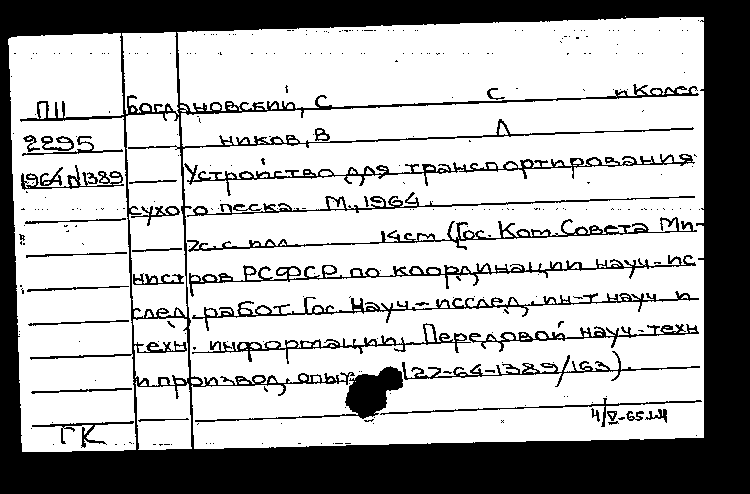 ПII Богдановский, С С и Колес-
2295 ников, В Л
1964 N1389 Устройство для транспортирования
сухого песка. М., 1964.
2с. с илл. 14см (Гос. Ком. Совета Ми-
нистров РСФСР по координации науч.-ис-
след. работ. Гос. Науч.-исслед. ин-т науч. и
техн. информации). Передовой науч.-техн
и производ. опыт (22-64-1389/163).
4/V-65
ГК